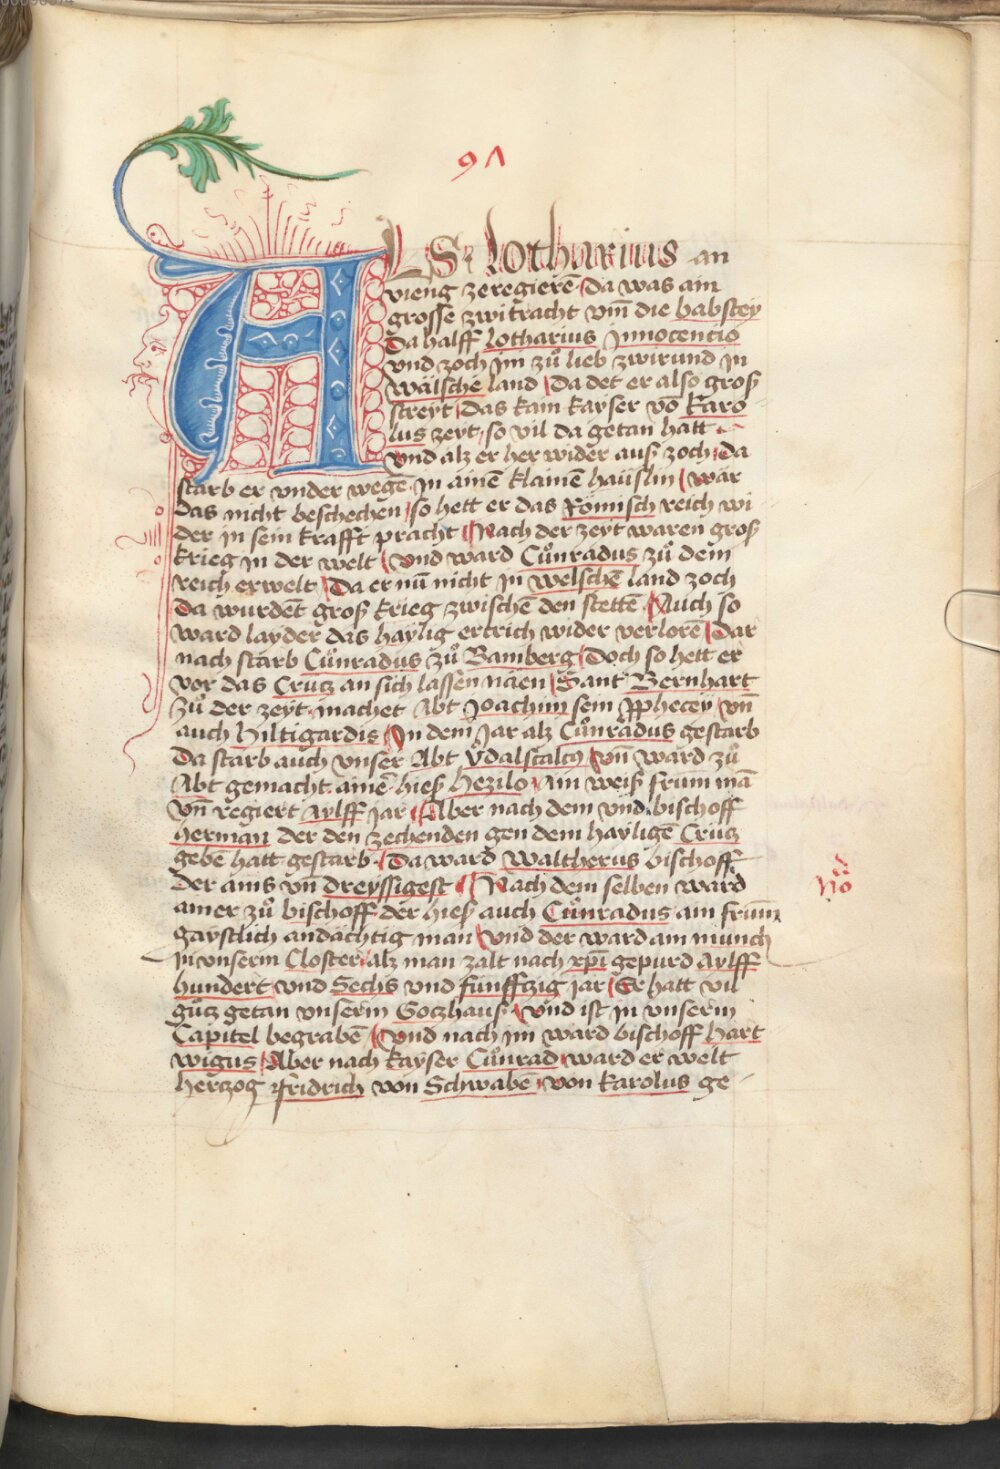 91
ALS Lotharius an
vieng zeregierē Da was ain
grosse zwitracht vm̄ die babstey
Da halff Lotharius Innocencio
vnd zoch im zů lieb zwirund in
wälsche land Da det er also groß
streyt Das kain kayser vō Karo
lus zeyt so vil da getan hatt
Vnd alz er her wider auß zoch Da
starb er vnder wegē In ainē klainē haüslin wär
das nicht beschechen so hett er das Römisch reich wi
der in sein krafft pracht Nach der zeyt waren groß
krieg in der welt Vnd ward Cůnradus zů dem
reich erwelt Da er nū nicht in welschē land zoch
Da wurdēt groß krieg zwischē den stettē Auch so
ward layder das haylig ertrich wider verlorē Dar
nach starb Cůnradus zů Bamberg Doch so hett er
vor das Crutz an sich lassen näen Sant Bernhart
zů der zeyt machet Abt Joachim sein pphecey vn̄
auch Hiltigardis In dem Jar alz Cůnradus gestarb
Da starb auch vnser Abt Vdalstalcꝰ vn̄ ward zů
Abt gemacht ainē hieß Hezilo Ain weiß frum mā
vn̄ regiert Aylff jar Aber nach dem vnd bischoff
Herman der den zechenden gen dem hayligē Crutz
gebē hatt gestarb Da ward Waltherus bischoff
Der ains vn̄ dreyssigest Nach dem selben ward
ainer zů bischoff der hieß auch Cůnradus ain frum̄
gaystlich andächtig man Vnd der ward ain münch
In vnserm Closter alz man zalt nach xp̄i gepurd Aylff
hundert vnd Sechs vnd fünffczig jar Er hatt vil
gůtz getan vnserm Gotzhaus Vnd ist in vnserm
Capitel begrabē Vnd nach im ward bischoff Hart
wigus Aber nach kayser Cůnrad ward er welt
Hertzog Fridrich von Schwabē von Karolus ge
No